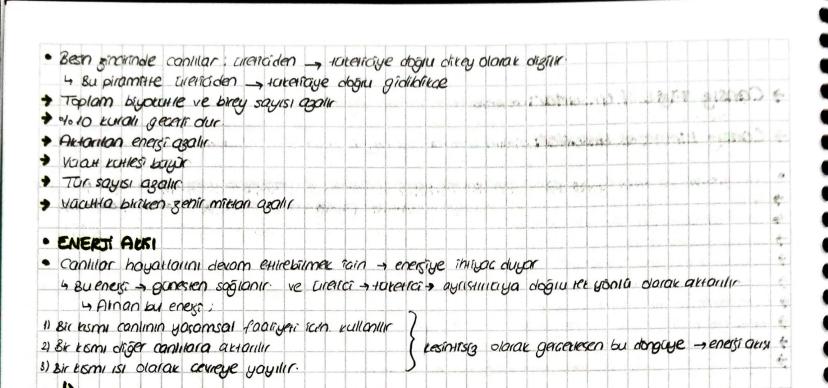 • Besin zincirinde canlılar ; üreticiden → tüketiciye doğru dikey olarak dizilir.
↳ Bu piramitte üreticiden → tüketiciye doğru gidildikçe
→ Toplam biyokütle ve birey sayısı azalır
→ %10 kuralı geçerli dur
→ Aktarılan enerji azalır
→ Vücut kütlesi büyür
→ Tür sayısı azalır
→ Vücutta biriken zehir miktarı azalır
• ENERJİ AKIŞI
• Canlılar hayatlarını devam ettirebilmek için → enerjiye ihtiyaç duyar
↳ Bu enerji → güneşten sağlanır. ve üretici → tüketici → ayrıştırıcıya doğru tek yönlü olarak aktarılır
↳ Alınan bu enerji ;
1) Bir kısmı canlının yaşamsal faaliyeti için kullanılır
2) Bir kısmı diğer canlılara aktarılır
3) Bir kısmı ısı olarak çevreye yayılır.
kesintisiz olarak gerçekleşen bu döngüye → enerji akışı